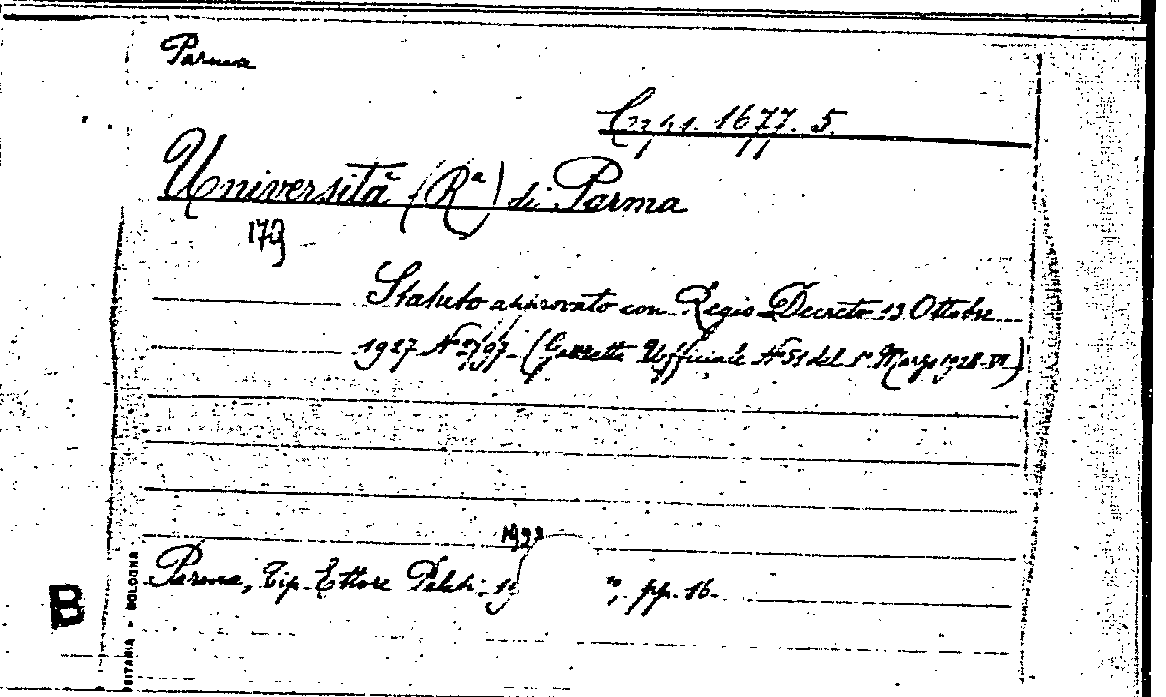 Parma
1677. 5.
Università (Rª) di Parma
179
Statuto approvato con Regio Decreto 13 Ottobre
1927 Nº 2797 - (Gazzetta Ufficiale Nº 51 del 1º Marzo 1928-VI)
Parma, Tip. Ettore 19 , pp. 16.
B
- BOLOGNA